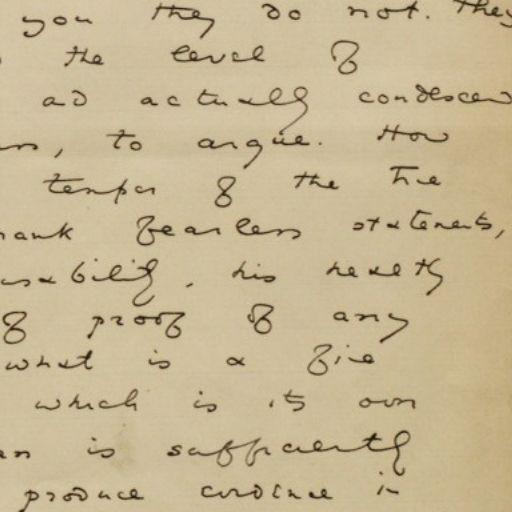 you they do not. They
the level of
and actually condescend
, to argue. How
temper of the true
frank fearless statements,
, his healthy
of proof of any
what is a fine
which is its own
is sufficiently
produce evidence in